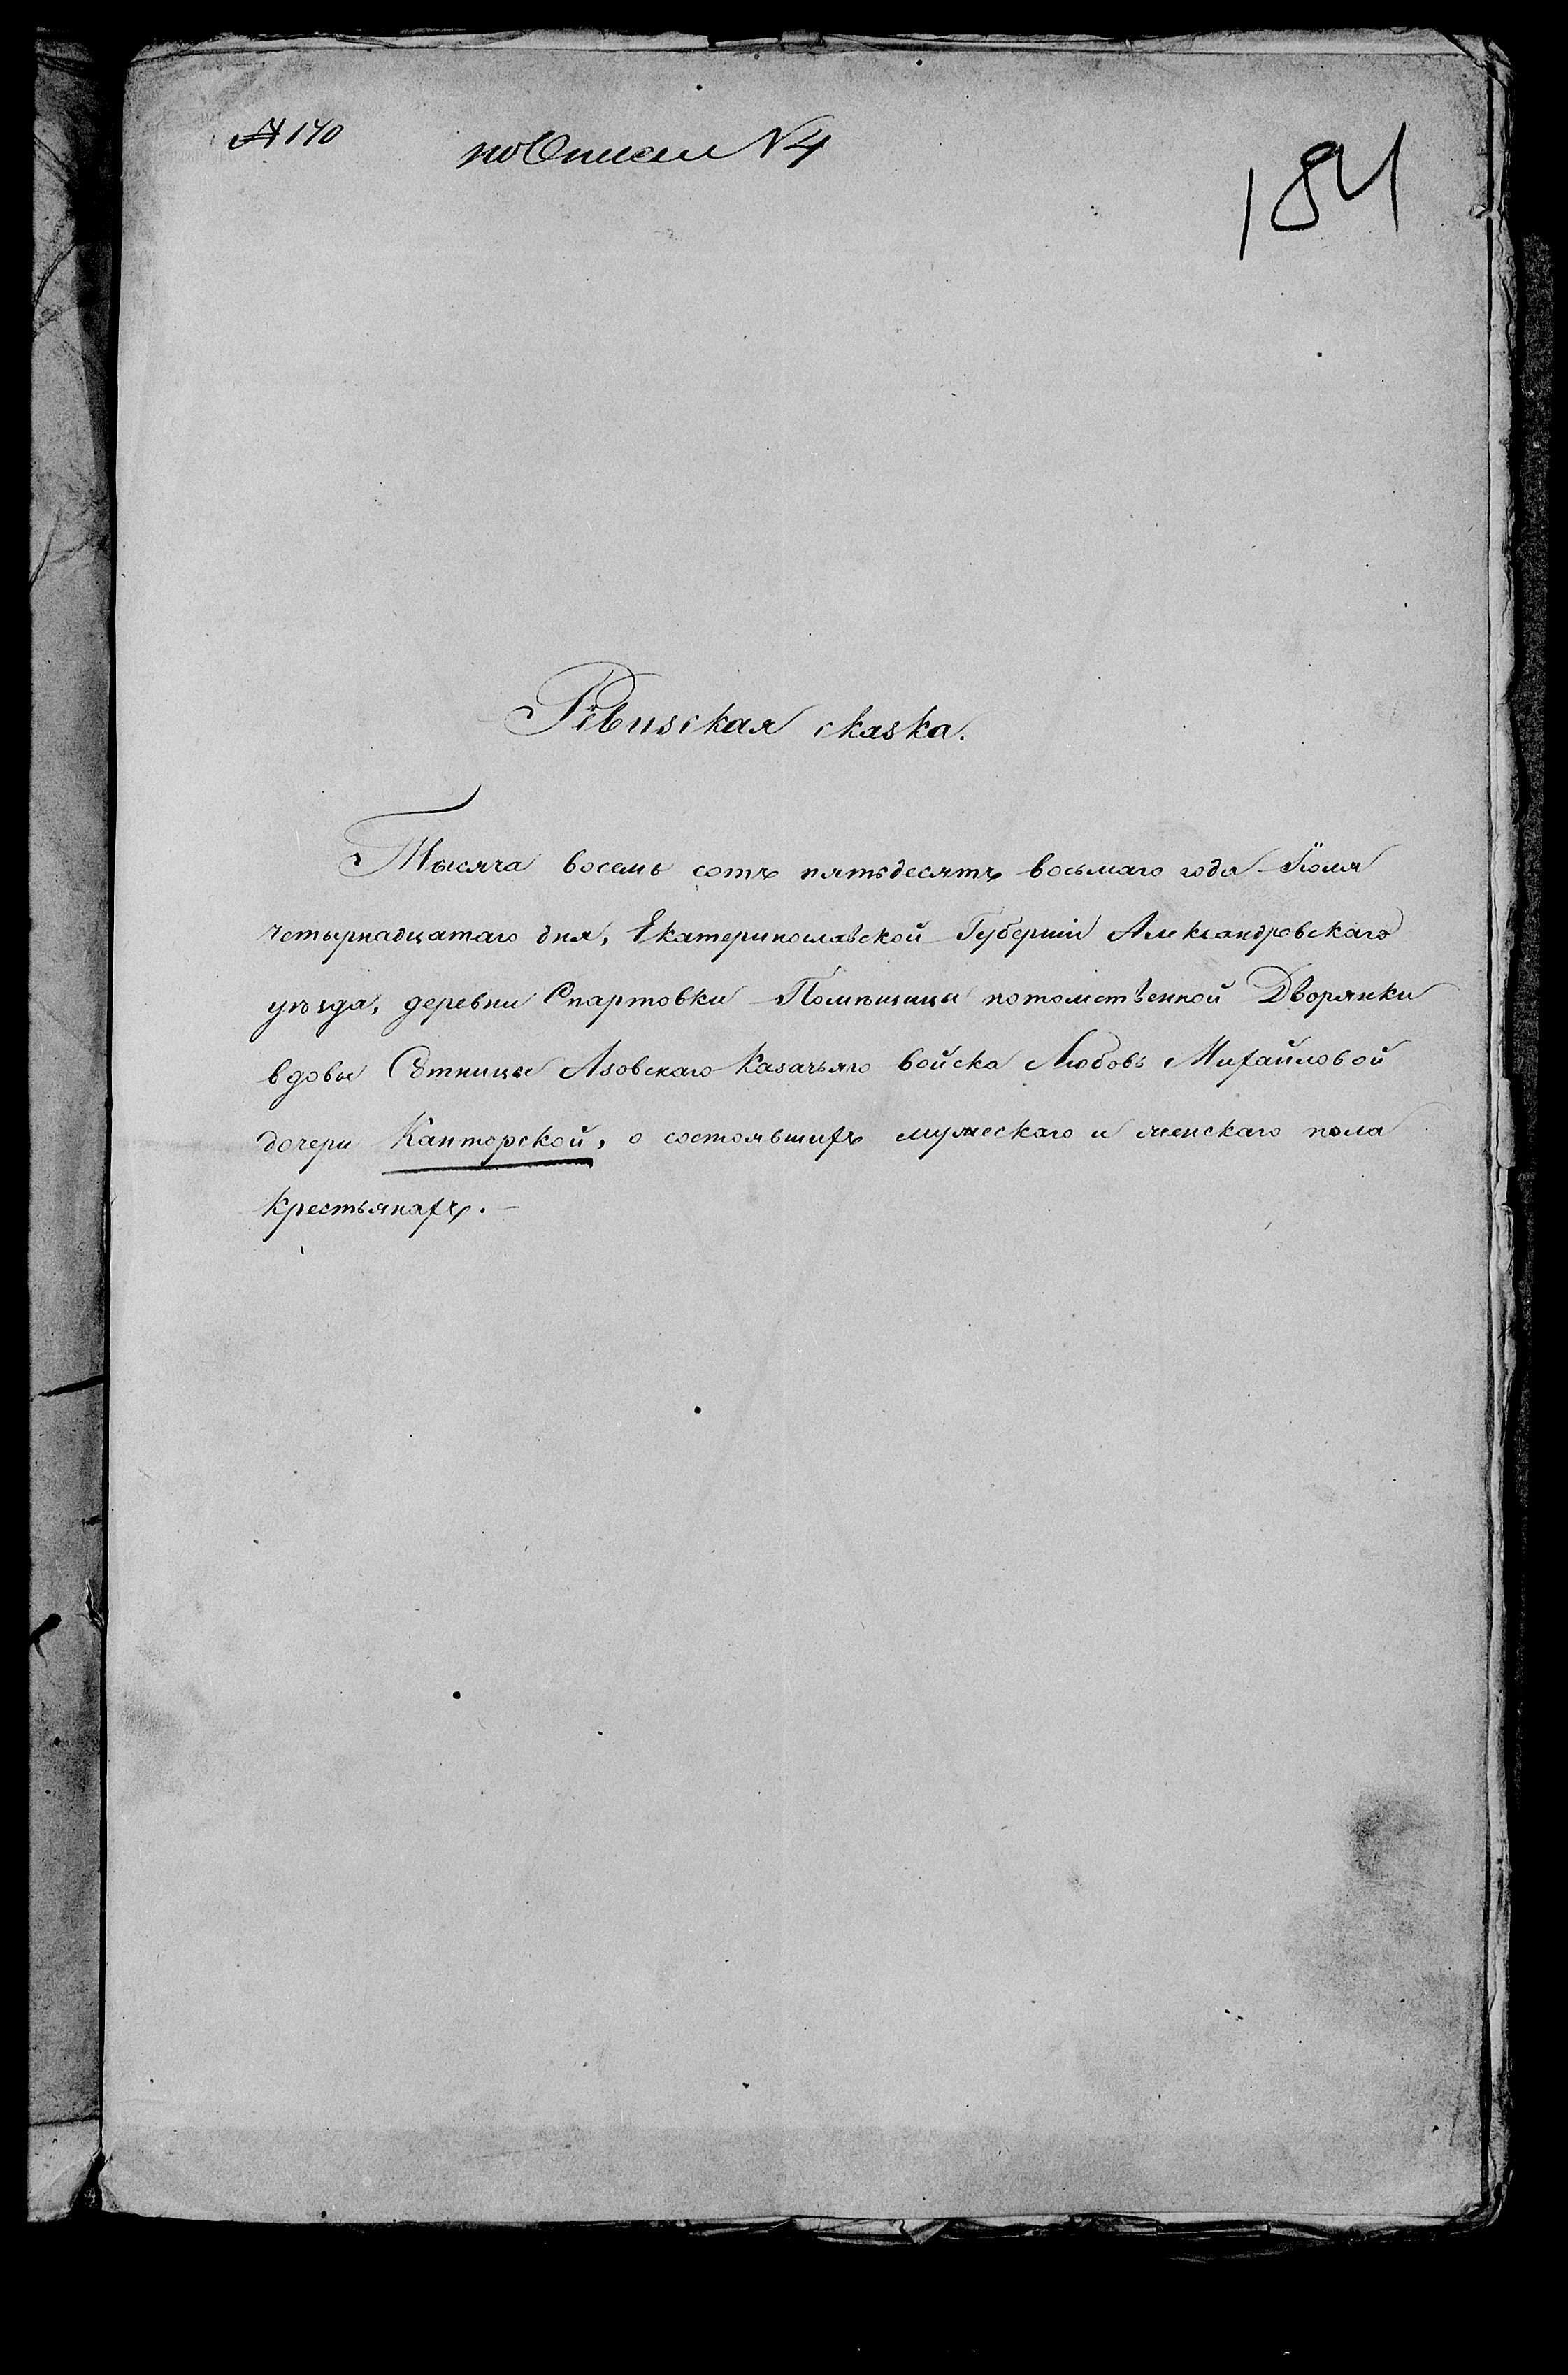 № 140
по Описи N 4
184
Ревизская сказка.
Тысяча восемь сотъ пятьдесятъ восьмаго года Іюля
четырнадцатаго дня, Екатеринославской Губерніи Александровскаго
уѣзда, деревни Спартовки Помѣщицы потомственной Дворянки
вдовы Сотницы Азовскаго Казачьяго войска Любовь Михайловой
дочери Канторской, о состоявшихъ мужескаго и женскаго пола
крестьянахъ. –